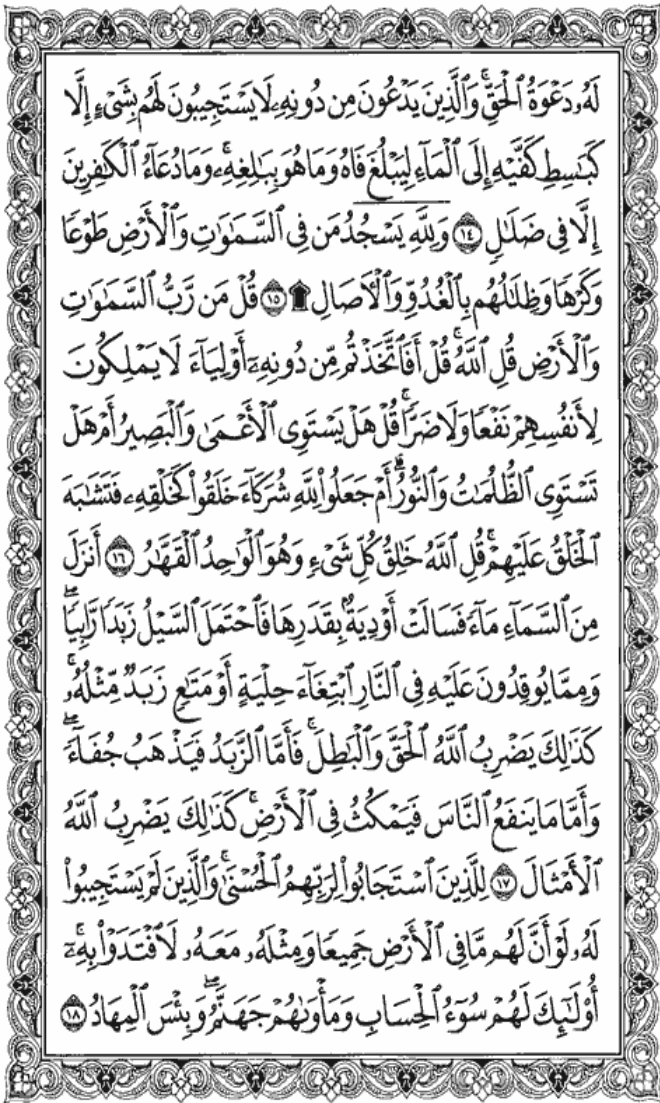 لَهُۥ دَعْوَةُ ٱلْحَقِّ ۚ وَٱلَّذِينَ يَدْعُونَ مِن دُونِهِۦ لَا يَسْتَجِيبُونَ لَهُم بِشَىْءٍ إِلَّا
كَبَـٰسِطِ كَفَّيْهِ إِلَى ٱلْمَآءِ لِيَبْلُغَ فَاهُ وَمَا هُوَ بِبَـٰلِغِهِۦ ۚ وَمَا دُعَآءُ ٱلْكَـٰفِرِينَ
إِلَّا فِى ضَلَـٰلٍ ١٤ وَلِلَّهِ يَسْجُدُ مَن فِى ٱلسَّمَـٰوَٰتِ وَٱلْأَرْضِ طَوْعًا
وَكَرْهًا وَظِلَـٰلُهُم بِٱلْغُدُوِّ وَٱلْـَٔاصَالِ ۩ ١٥ قُلْ مَن رَّبُّ ٱلسَّمَـٰوَٰتِ
وَٱلْأَرْضِ قُلِ ٱللَّهُ ۚ قُلْ أَفَٱتَّخَذْتُم مِّن دُونِهِۦٓ أَوْلِيَآءَ لَا يَمْلِكُونَ
لِأَنفُسِهِمْ نَفْعًا وَلَا ضَرًّا ۚ قُلْ هَلْ يَسْتَوِى ٱلْأَعْمَىٰ وَٱلْبَصِيرُ أَمْ هَلْ
تَسْتَوِى ٱلظُّلُمَـٰتُ وَٱلنُّورُ ۗ أَمْ جَعَلُوا۟ لِلَّهِ شُرَكَآءَ خَلَقُوا۟ كَخَلْقِهِۦ فَتَشَـٰبَهَ
ٱلْخَلْقُ عَلَيْهِمْ ۚ قُلِ ٱللَّهُ خَـٰلِقُ كُلِّ شَىْءٍ وَهُوَ ٱلْوَٰحِدُ ٱلْقَهَّـٰرُ ١٦ أَنزَلَ
مِنَ ٱلسَّمَآءِ مَآءً فَسَالَتْ أَوْدِيَةٌۢ بِقَدَرِهَا فَٱحْتَمَلَ ٱلسَّيْلُ زَبَدًا رَّابِيًا ۖ
وَمِمَّا يُوقِدُونَ عَلَيْهِ فِى ٱلنَّارِ ٱبْتِغَآءَ حِلْيَةٍ أَوْ مَتَـٰعٍ زَبَدٌ مِّثْلُهُۥ ۚ
كَذَٰلِكَ يَضْرِبُ ٱللَّهُ ٱلْحَقَّ وَٱلْبَـٰطِلَ ۚ فَأَمَّا ٱلزَّبَدُ فَيَذْهَبُ جُفَآءً ۖ
وَأَمَّا مَا يَنفَعُ ٱلنَّاسَ فَيَمْكُثُ فِى ٱلْأَرْضِ ۚ كَذَٰلِكَ يَضْرِبُ ٱللَّهُ
ٱلْأَمْثَالَ ١٧ لِلَّذِينَ ٱسْتَجَابُوا۟ لِرَبِّهِمُ ٱلْحُسْنَىٰ ۚ وَٱلَّذِينَ لَمْ يَسْتَجِيبُوا۟
لَهُۥ لَوْ أَنَّ لَهُم مَّا فِى ٱلْأَرْضِ جَمِيعًا وَمِثْلَهُۥ مَعَهُۥ لَٱفْتَدَوْا۟ بِهِۦٓ ۚ
أُو۟لَـٰٓئِكَ لَهُمْ سُوٓءُ ٱلْحِسَابِ وَمَأْوَىٰهُمْ جَهَنَّمُ ۖ وَبِئْسَ ٱلْمِهَادُ ١٨